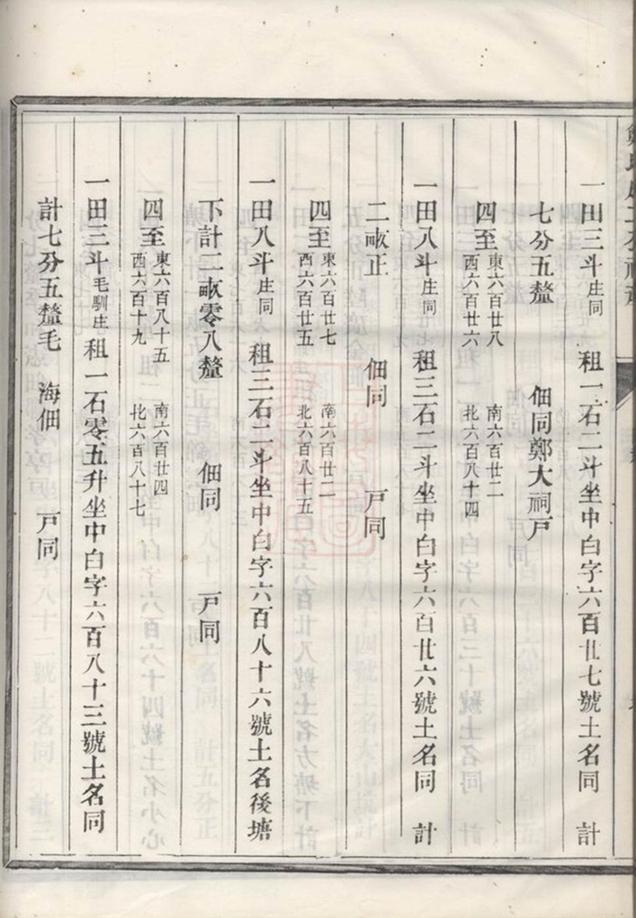 一田三斗庄同 租一石二斗坐中白字六百廿七號土名同 計
七分五釐 佃同鄭大祠戶
四至東六百廿八 南六百廿二
西六百廿六 北六百八十四
一田八斗庄同 租三石二斗坐中白字六百廿六號土名同 計
二畝正 佃同 戶同
四至東六百廿七 南六百廿二
西六百廿五 北六百八十五
一田八斗庄同 租三石二斗坐中白字六百八十六號土名後塘
下計二畝零八釐 佃同 戶同
四至東六百八十五 南六百廿四
西六百十九 北六百八十七
一田三斗毛馴庄 租一石零五升坐中白字六百八十三號土名同
計七分五釐毛 海佃 戶同